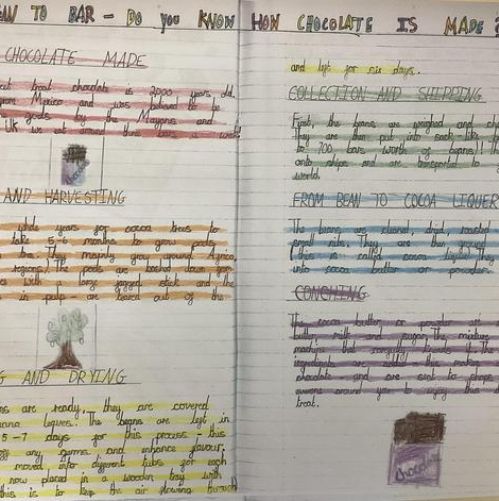 AN TO BAR - DO YOU KNOW HOW CHOCOLATE IS MADE?
CHOCOLATE MADE
treat chocolate is 2000 years old
Mexico and was believed to be
gods by the Mayans and
UK we eat around three bars a week
AND HARVESTING
while years for cocoa trees to
take 5-6 months to grow pods
the They mainly grow around Africa
regions) The pods are bashed down from
with a large jagged stick and the
in pulp - are based out of the
AND DRYING
ns are ready, they are covered
nana leaves. The beans are left in
5-7 days for this process - this
any germs and enhance flavour.
moved into different tubs for each
now placed in a wooden tray with
this is to keep the air flowing through
and left for six days.
COLLECTION AND SHIPPING
First, the beans are weighed and
they are then put into sack like
to 700 bars worth of beans!!
onto ships and are transported to
world.
FROM BEAN TO COCOA LIQUER
The beans are cleaned, dried, roasted
small nibs. They are then ground
(this is called cocoa liquer) They
into cocoa butter or powder.
CONCHING
The cocoa butter or powder is
butter milk and sugar. The mixture
machine that roughly kneads it. The
ingredients are added this makes
chocolate and are sent to shops
everyone around you to enjoy this
treat.
Chocolate